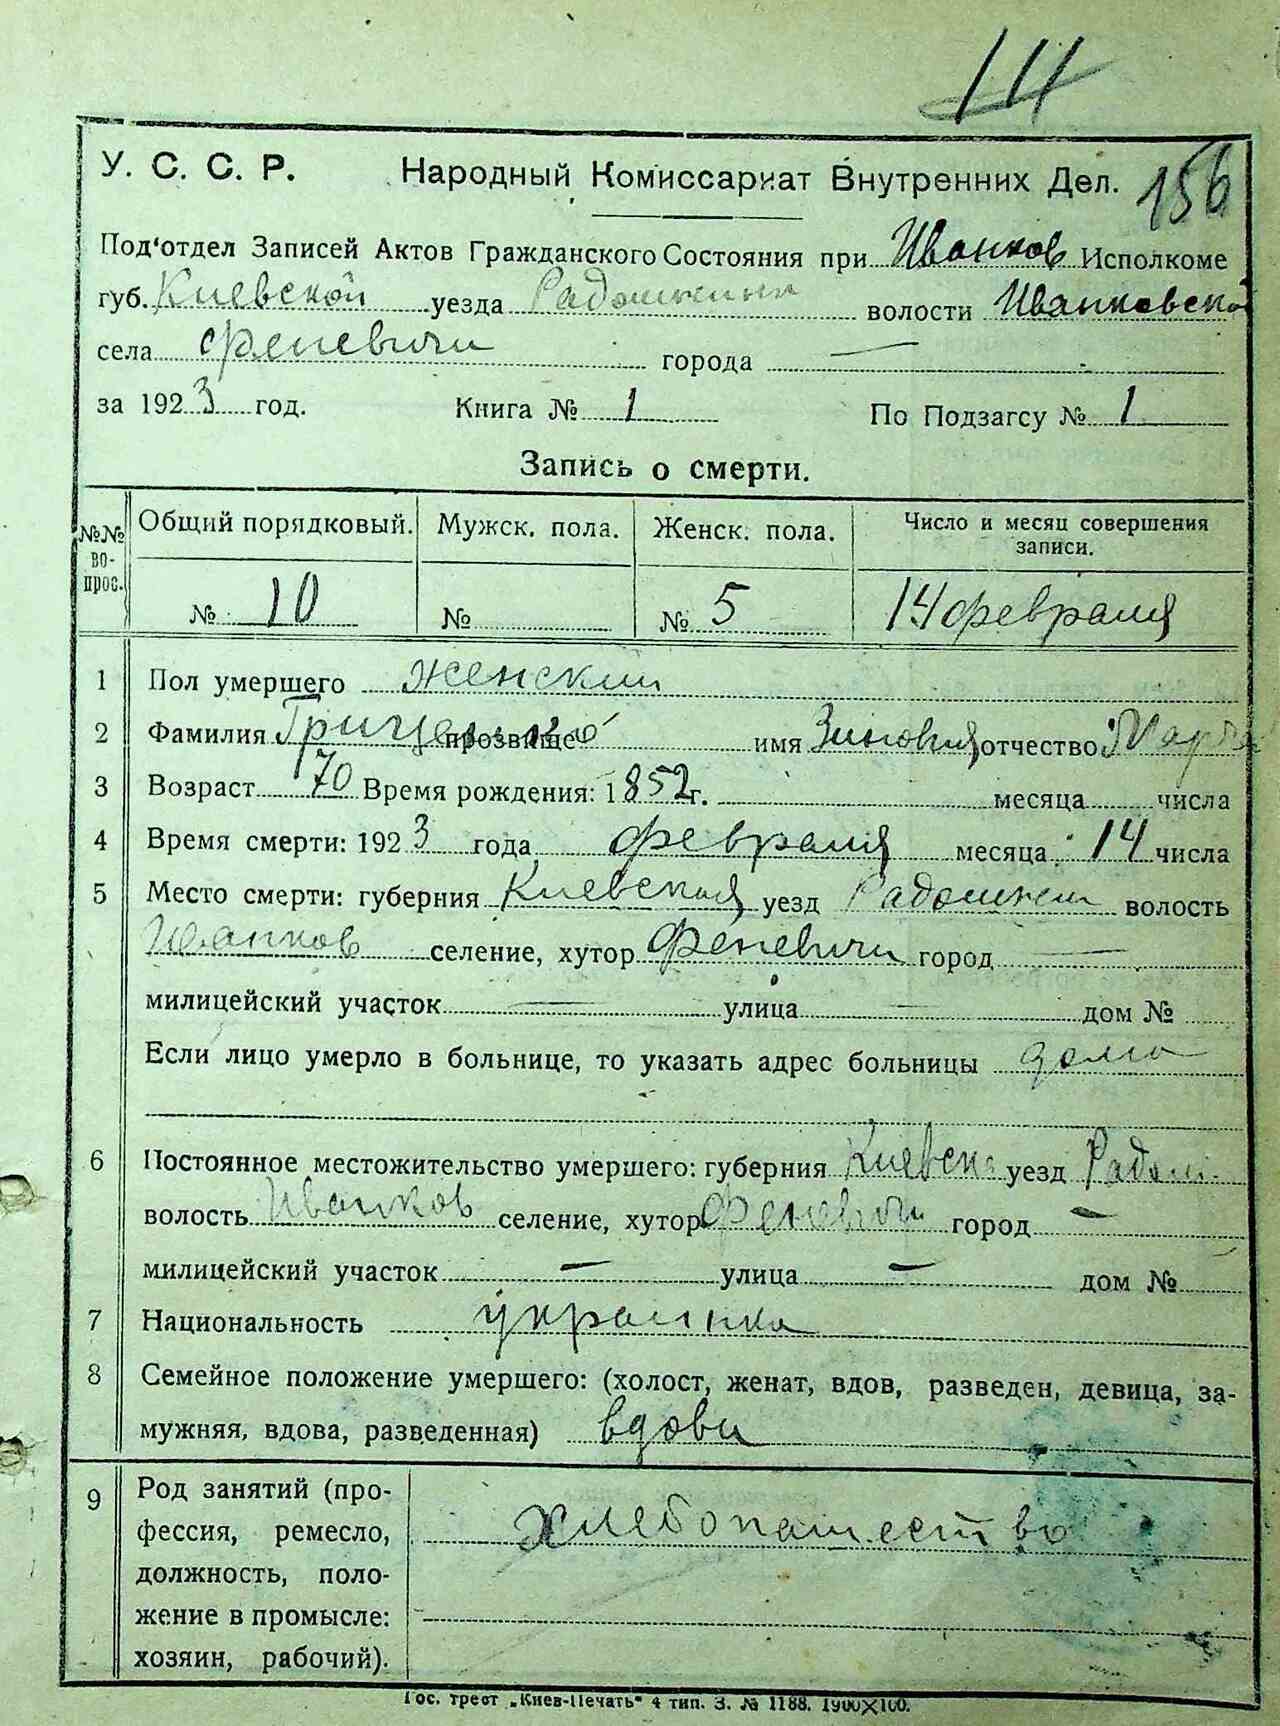 111
У. С. С. Р. Народный Комиссариат Внутренних Дел. 156
Под'отдел Записей Актов Гражданского Состояния при Иванков Исполкоме
губ. Киевской уезда волости Иванковской
села Феневичи города —
за 1923 год. Книга № 1 По Подзагсу № 1
Запись о смерти.
№№ во- прос. Общий порядковый. Мужск. пола. Женск. пола. Число и месяц совершения записи.
№ 10 № № 5 14 февраля
1 Пол умершего женский
2 Фамилия прозвище имя Зиновия отчество
3 Возраст 70 Время рождения: 1852 г. месяца числа
4 Время смерти: 1923 года февраля месяца 14 числа
5 Место смерти: губерния Киевская уезд волость
Иванков селение, хутор Феневичи город —
милицейский участок — улица — дом №
Если лицо умерло в больнице, то указать адрес больницы дома
6 Постоянное местожительство умершего: губерния Киевск уезд Радом.
волость Иванков селение, хутор Феневичи город —
милицейский участок — улица — дом №
7 Национальность украинка
8 Семейное положение умершего: (холост, женат, вдов, разведен, девица, за-
мужняя, вдова, разведенная) вдова
9 Род занятий (про-
фессия, ремесло, хлебопашество
должность, поло-
жение в промысле:
хозяин, рабочий).
Гос. трест „Киев-Печать" 4 тип. З. № 1188. 1900×100.